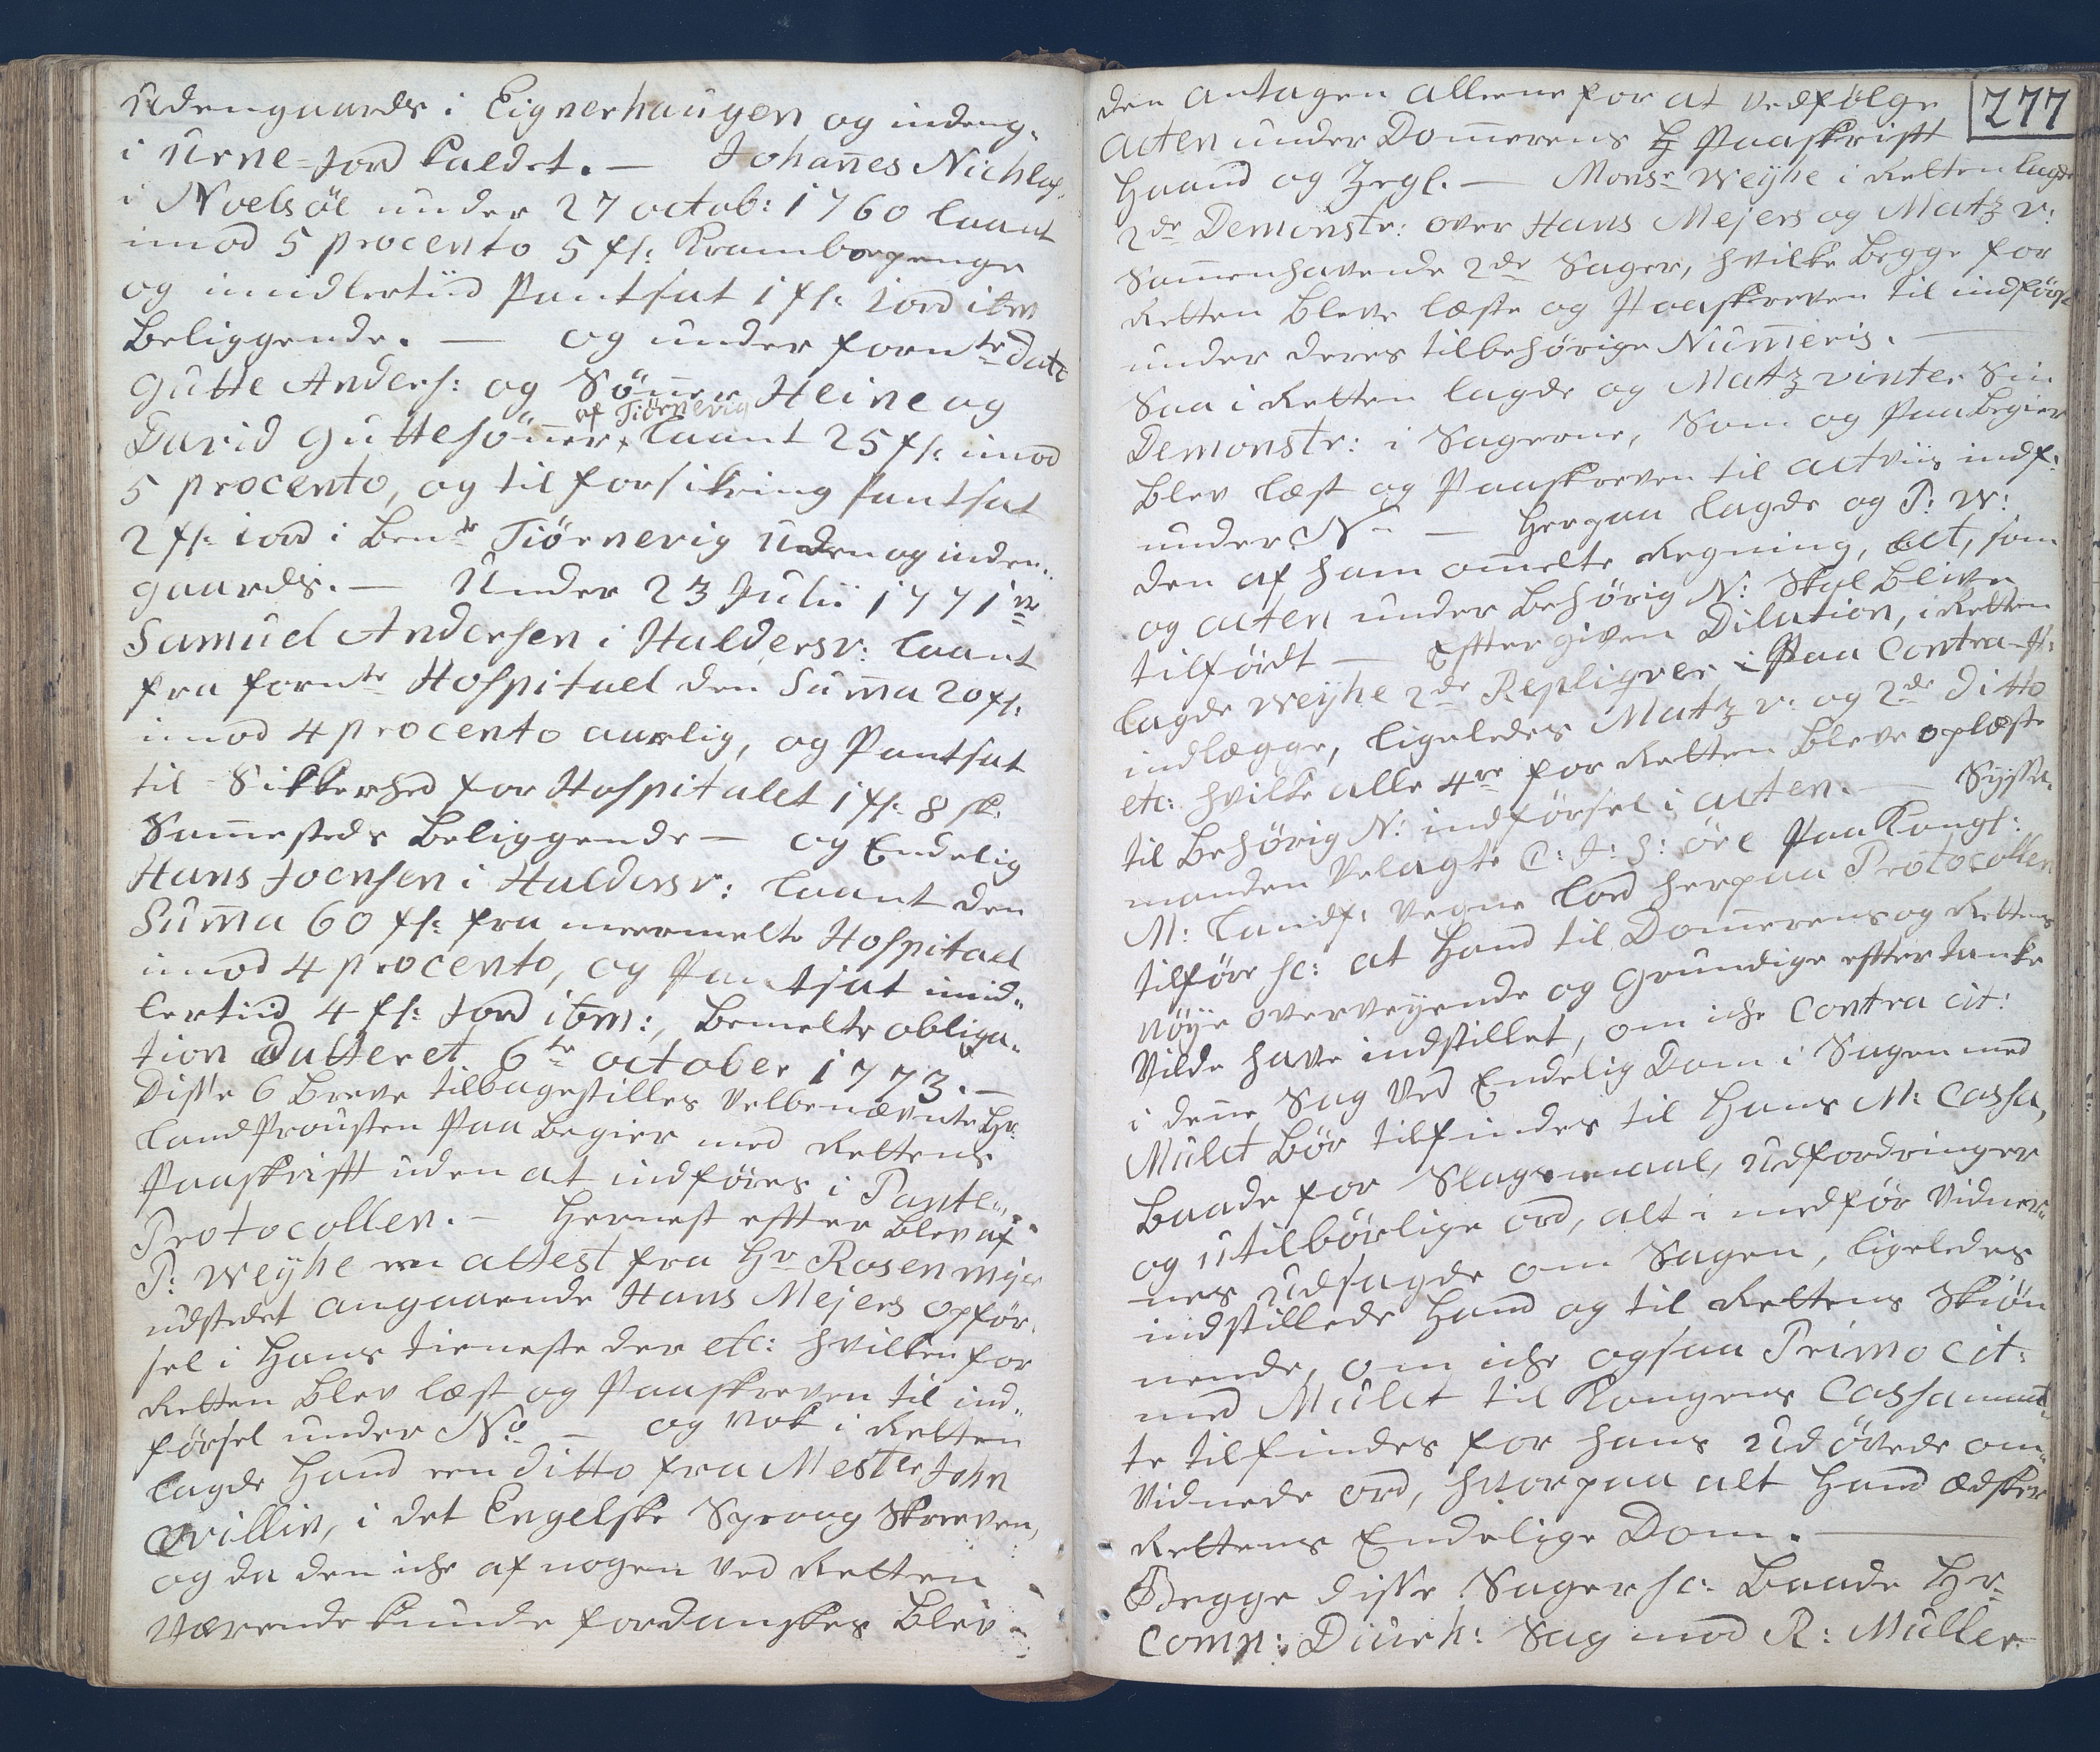 Udengaards i Eignerhaugen og indeng:
i Urne-Jord kaldet. — Johannes Nichlas:
i Noelsöe under 27 octob: 1760 laant
imod 5 procento 5 fs: Krambopenge
og imidlertiid Pantsat 1 fs: iord ibm
Beliggende. — og under fornte dato
Gutte Anders: og Sönner Heine og
af Tiörnevig
David Guttesönner, laant 25 fs: imod
5 procento, og til forsikring Pantsat
2 fs: iord i Bente Tiörnevig Uden og inden-
gaards. — Under 23 Julii 1771 er
Samuel Andersen i Haldersv: laant
fra fornte Hospitael den Summa 20 fs:
imod 4 procento aarlig, og Pantsat
til Sikkerhed for Hospitalet 1 fs: 8 sk:
Sammesteds Beliggende — og Endelig
Hans Joensen i Haldersv: laant den
Summa 60 fs: fra meermelte Hospitael
imod 4 procento, og Pantsat imid-
lertiid 4 fs: Jord ibm:, bemelte obliga-
tion datteret 6te october 1773. —
Disse 6 Breve tilbagestilles Velbenævnte Hr:
Landfrousten Paa Begier med Rettens
Paaskrifft uden at indføres i Pante-
Protocollen. — Hernest effter Blev af
P: Weyhe een attest fra Hr Rosenmyer
udstedet angaaende Hans Mejers opfør-
sel i Hans tieneste der etc: hvilken for
Retten Blev læst og Paaskreven til ind-
førsel under No — og nok i Retten
lagde Hand een ditto fra Mester John
Willin, i det Engelske Sprog Skreven,
og da den iche af nogen ved Retten
værende kunde fordanskes Blev
277
den antagen alleene for at vedfølge
acten under Dommerens Paaskrifft
Haand og Zegl. — Monsr Weyhe i Retten lagde
2de Demonstr: over Hans Mejers og Matz v:
Sammenhavende 2de Sager, hvilke Begge for
Retten Bleve læste og Paaskreven til indførs:
under deres tilbehørige Numeris. —
Saa i Retten lagde og Matz vinter Sin
Demonstr: i Sagerne, Som og Paa begier
Blev læst og Paaskreven til actviis indf:
under No — Herpaa lagde og P: W:
den af ham ommelte Regning, act, som
og acten under Behørig N: Skal blive
tilført — Effter given Dilation, i Retten
lagde Weyhe 2de Repliqver Paa Contra
indlægge, ligeledes Matz v: og 2de ditto
etc: hvilke alle 4re for Retten Bleve oplæste
til Behørig N: indførsel i acten. — Syssel-
manden Velagte P: J: H: öre Paa Kongl:
M: Landf: vegne lod herpaa Protocollen
tilføre sc: at Hand til Dommerens og Rettens
nøye overveyende og Grundige efftertanke
Vilde have indstillet, om iche Contra cit:
i denne Sag ved Endelig Dom i Sagen med
Mulct bør tilfindes til Hans M: Cassa,
Baade for Slagsmaal, udfordringer
og utilbørlige ord, alt i medfør Vidner-
nes Udsagde om Sagen, ligeledes
indstillede Hand og til Rettens Skiøn
nende, om iche ogsaa Primo cit:
med Mulct til Kongens Cassa maat-
te tilfindes for hans udøvede om-
vidnede ord, hvorpaa alt Hand ædsker
Rettens Endelige Dom. —
Begge disse Sager sc: Baade Hr
Comp: Diurh: Sag mod R: Müller